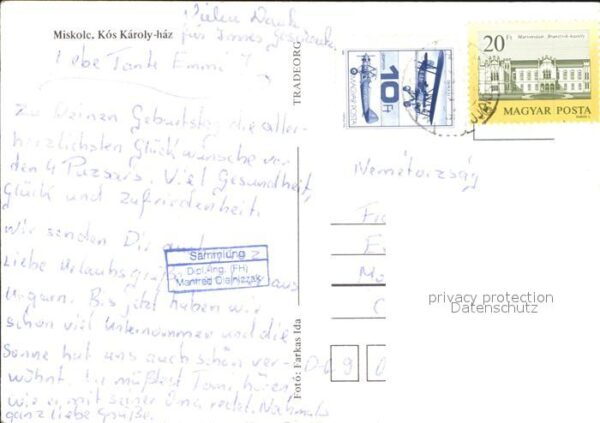 Miskolc, Kós Károly-ház
Vielen Dank
für
Liebe Tante Emmi!
Zu Deinem Geburtstag die aller-
herzlichsten Glückwünsche von
den 4 Viel Gesundheit,
Glück und Zufriedenheit.
Wir senden Dir auch
liebe Urlaubsgrüße aus
Ungarn. Bis jetzt haben wir
schon viel unternommen und die
Sonne hat uns auch schön ver-
wöhnt. Du müßtest Tom hören,
wie er mit seiner Oma redet. Nochmals
ganz liebe Grüße.
Sammlung
Dipl.-Ing. (FH)
Manfred
TRADEORG
Fotó: Farkas Ida
10 Ft
MAGYAR POSTA
20 Ft
MAGYAR POSTA
Németország
privacy protection
Datenschutz